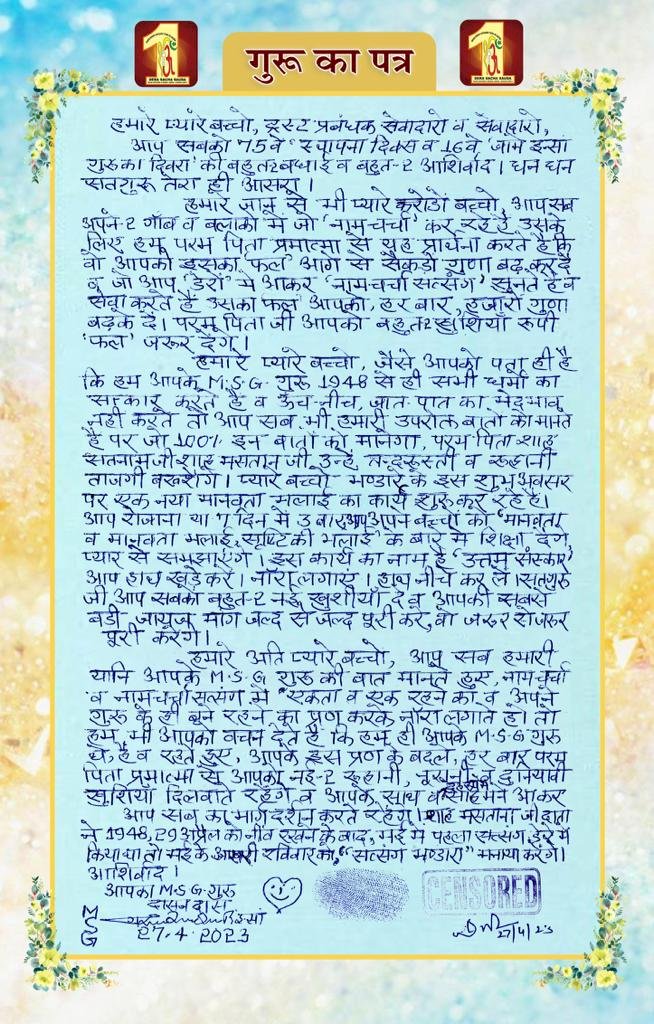 DERA SACHA SAUDA
DERA SACHA SAUDA
गुरू का पत्र
हमारे प्यारे बच्चो, ट्रस्ट प्रबंधक सेवादारो व सेवादारो,
आप सबको 75वें 'स्थापना दिवस व 16वें 'जाम इन्सां
गुरु का दिवस' की बहुत2 बधाई व बहुत-2 आशिर्वाद। धन धन
सतगुरू तेरा ही आसरा।
हमारे जान से भी प्यारे करोडों बच्चो, आप सब
अपने-2 गाँव व बलाको में जो 'नामचर्चा' कर रहे हैं उसके
लिए हम परम पिता प्रमात्मा से यह प्रार्थना करते हैं कि
वो आपको इसका 'फल' आगे से सैकडों गुणा बढ़ कर दें
व जो आप 'डेरों' में आकर 'नामचर्चा सत्संग' सुनते हैं व
सेवा करते हैं उसका फल आपको, हर बार, हजारों गुणा
बढ़के दें। परम पिता जी आपको बहुत2 खुशियाँ रूपी
'फल' जरूर देंगे।
हमारे प्यारे बच्चो, जैसे आपको पता ही है
कि हम आपके M.S.G. गुरू 1948 से ही सभी धर्मो का
सत्कार करते हैं व ऊँच-नीच, जात पात का भेदभाव
नहीं करते तो आप सब भी हमारी उपरोक्त बातों को मानते
हैं पर जो 100% इन बातों को मानेगा, परम पिता शाह
सतनाम जी शाह मसतान जी उन्हें तन्दुरूस्ती व रूहानी
ताजगी बख्शेंगे। प्यारे बच्चो भण्डारे के इस शुभ अवसर
पर एक नया मानवता भलाई का कार्य शुरू कर रहे हैं।
आप रोजाना या 7 दिन में 3 बार आप अपने बच्चों को "मानवता
व मानवता भलाई, सृष्टि की भलाई" के बारे में शिक्षा देंगे,
प्यार से समझाएंगे। इस कार्य का नाम है 'उत्तम संस्कार'
आप हाथ खड़े करें। नॉरा लगाएं। हाथ नीचे कर लें। सतगुरु
जी आप सबको बहुत-2 नई खुशीयाँ दे व आपकी सबसे
बडी जायज माँग जल्द से जल्द पूरी करे, वो जरूर से जरूर
पूरी करेंगे।
हमारे अति प्यारे बच्चो, आप सब हमारी
यानि आपके M.S.G गुरू की बात मानते हुए, नामचर्चा
व नामचर्चा सत्संग में "एकता व एक रहने का व अपने
गुरू के ही बने रहने, का प्रण करके नॉरा लगाते हो। तो
हम भी आपको वचन देते हैं कि हम ही आपके M.S.G गुरू
थे, हैं व रहते हुए, आपके इस प्रण के बदले, हर बार परम
पिता प्रमात्मा से आपको नई-2 रूहानी, नूरानी व दुनियावी
खुशियाँ दिलवाते रहेंगे व आपके साथ व सामने आकर
आप सब का मार्ग दर्शन करते रहेंगे। शाह मसताना जी दाता
ने 1948, 29 अप्रैल को नींव रखने के बाद, मई में पहला सत्संग, डेरे में
किया था तो मई के आखरी रविवार को, "सत्संग भण्डारा" मनाया करेंगे।
आशिर्वाद।
आपका M.S.G. गुरू
दासन दास
MSG
27.4.2023
CENSORED